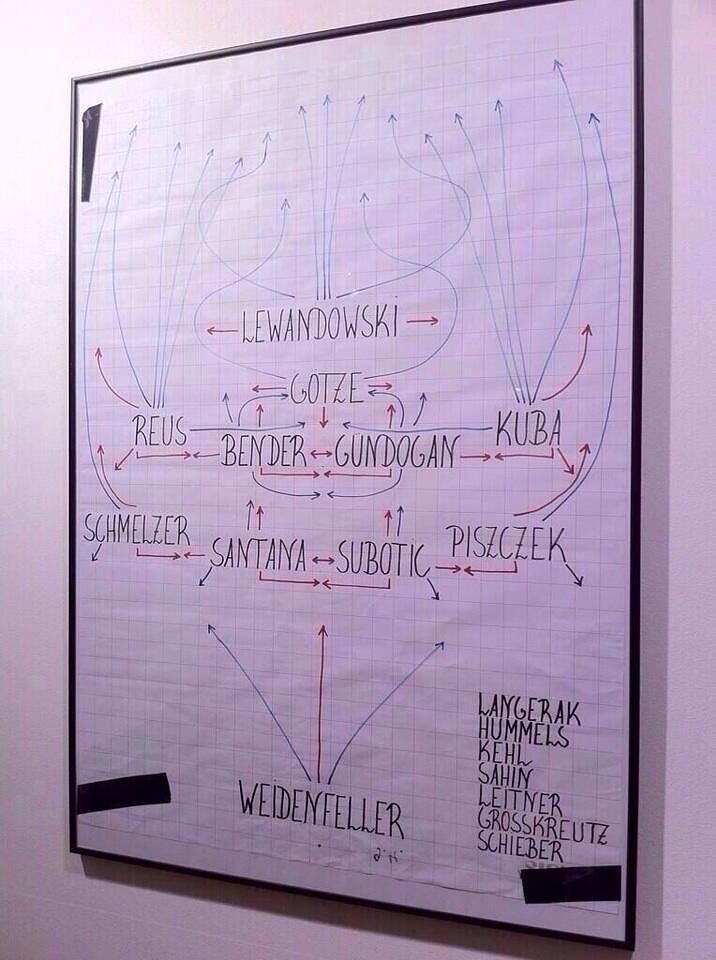 LEWANDOWSKI
GOTZE
REUS
KUBA
BENDER
GUNDOGAN
SCHMELZER
PISZCZEK
SANTANA
SUBOTIC
WEIDENFELLER
LANGERAK
HUMMELS
KEHL
SAHIN
LEITNER
GROSSKREUTZ
SCHIEBER